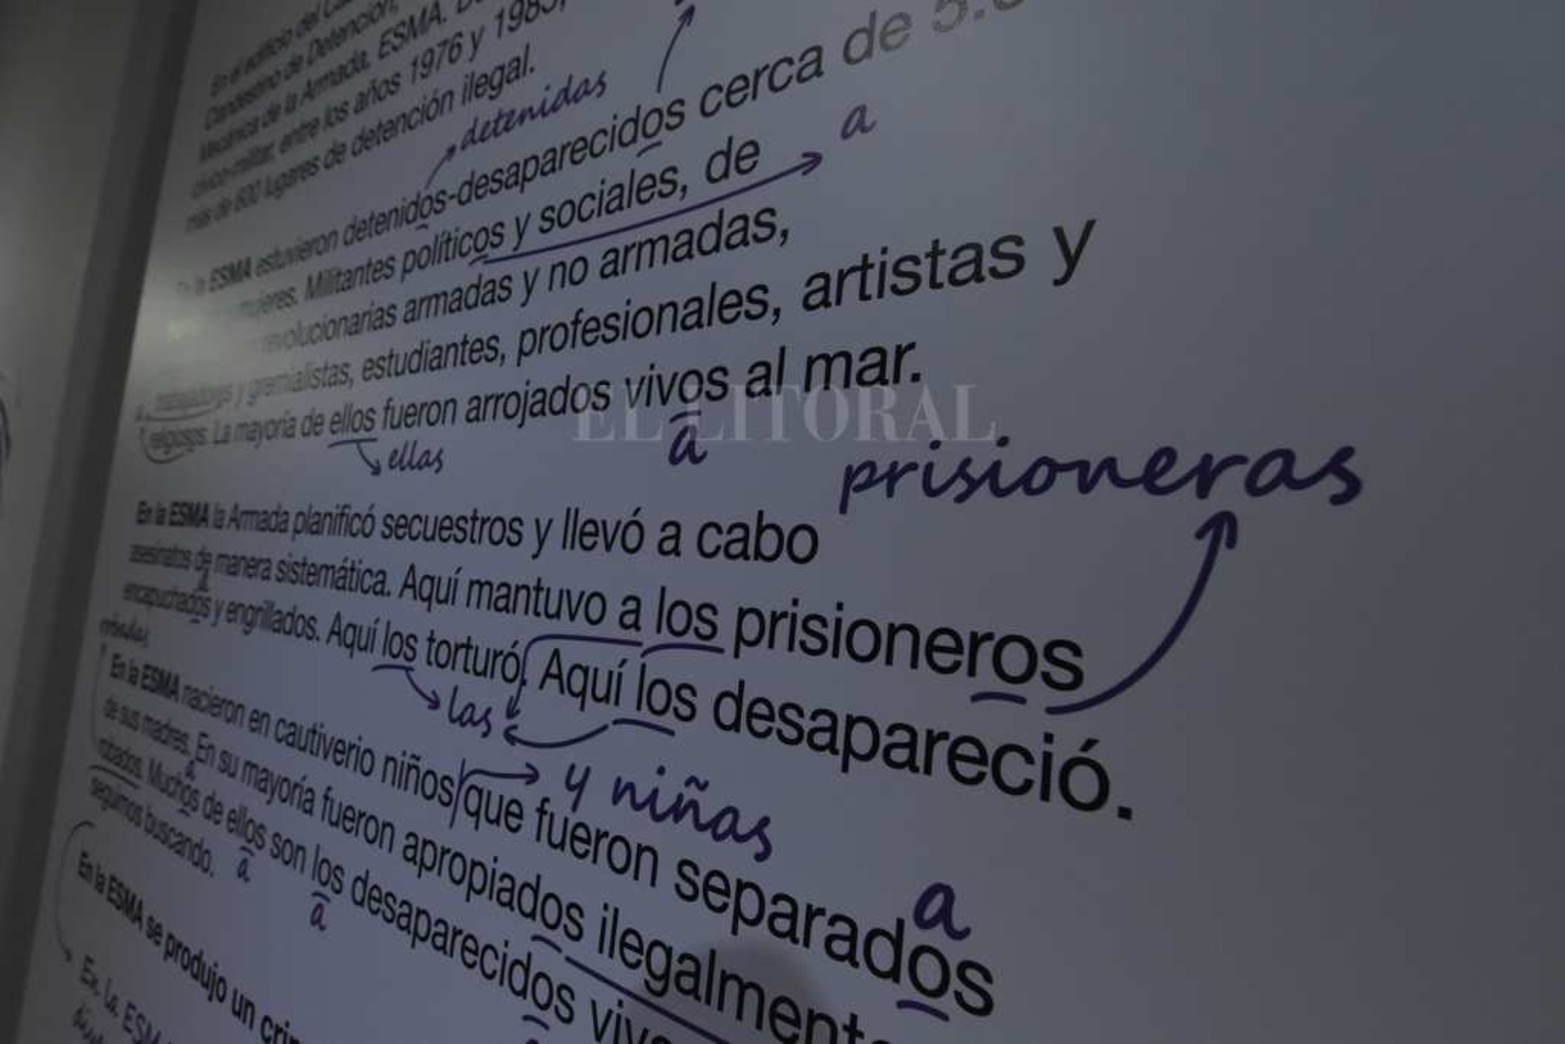 En el edificio del
Clandestino de Detención,
Mecánica de la Armada, ESMA.
cívico-militar, entre los años 1976 y 1983,
más de 600 lugares de detención ilegal.
detenidas
En la ESMA estuvieron detenidos-desaparecidos cerca de 5.
a
mujeres. Militantes políticos y sociales, de
revolucionarias armadas y no armadas,
trabajadores y gremialistas, estudiantes, profesionales, artistas y
religiosos. La mayoría de ellos fueron arrojados vivos al mar.
EL LITORAL
ellas
a
prisioneras
En la ESMA la Armada planificó secuestros y llevó a cabo
asesinatos de manera sistemática. Aquí mantuvo a los prisioneros
a
encapuchados y engrillados. Aquí los torturó. Aquí los desapareció.
las
En la ESMA nacieron en cautiverio niños que fueron separados
y niñas
a
de sus madres. En su mayoría fueron apropiados ilegalment
a
robados. Muchos de ellos son los desaparecidos viv
a
a
seguimos buscando.
En la ESMA se produjo un crim
En la ESM